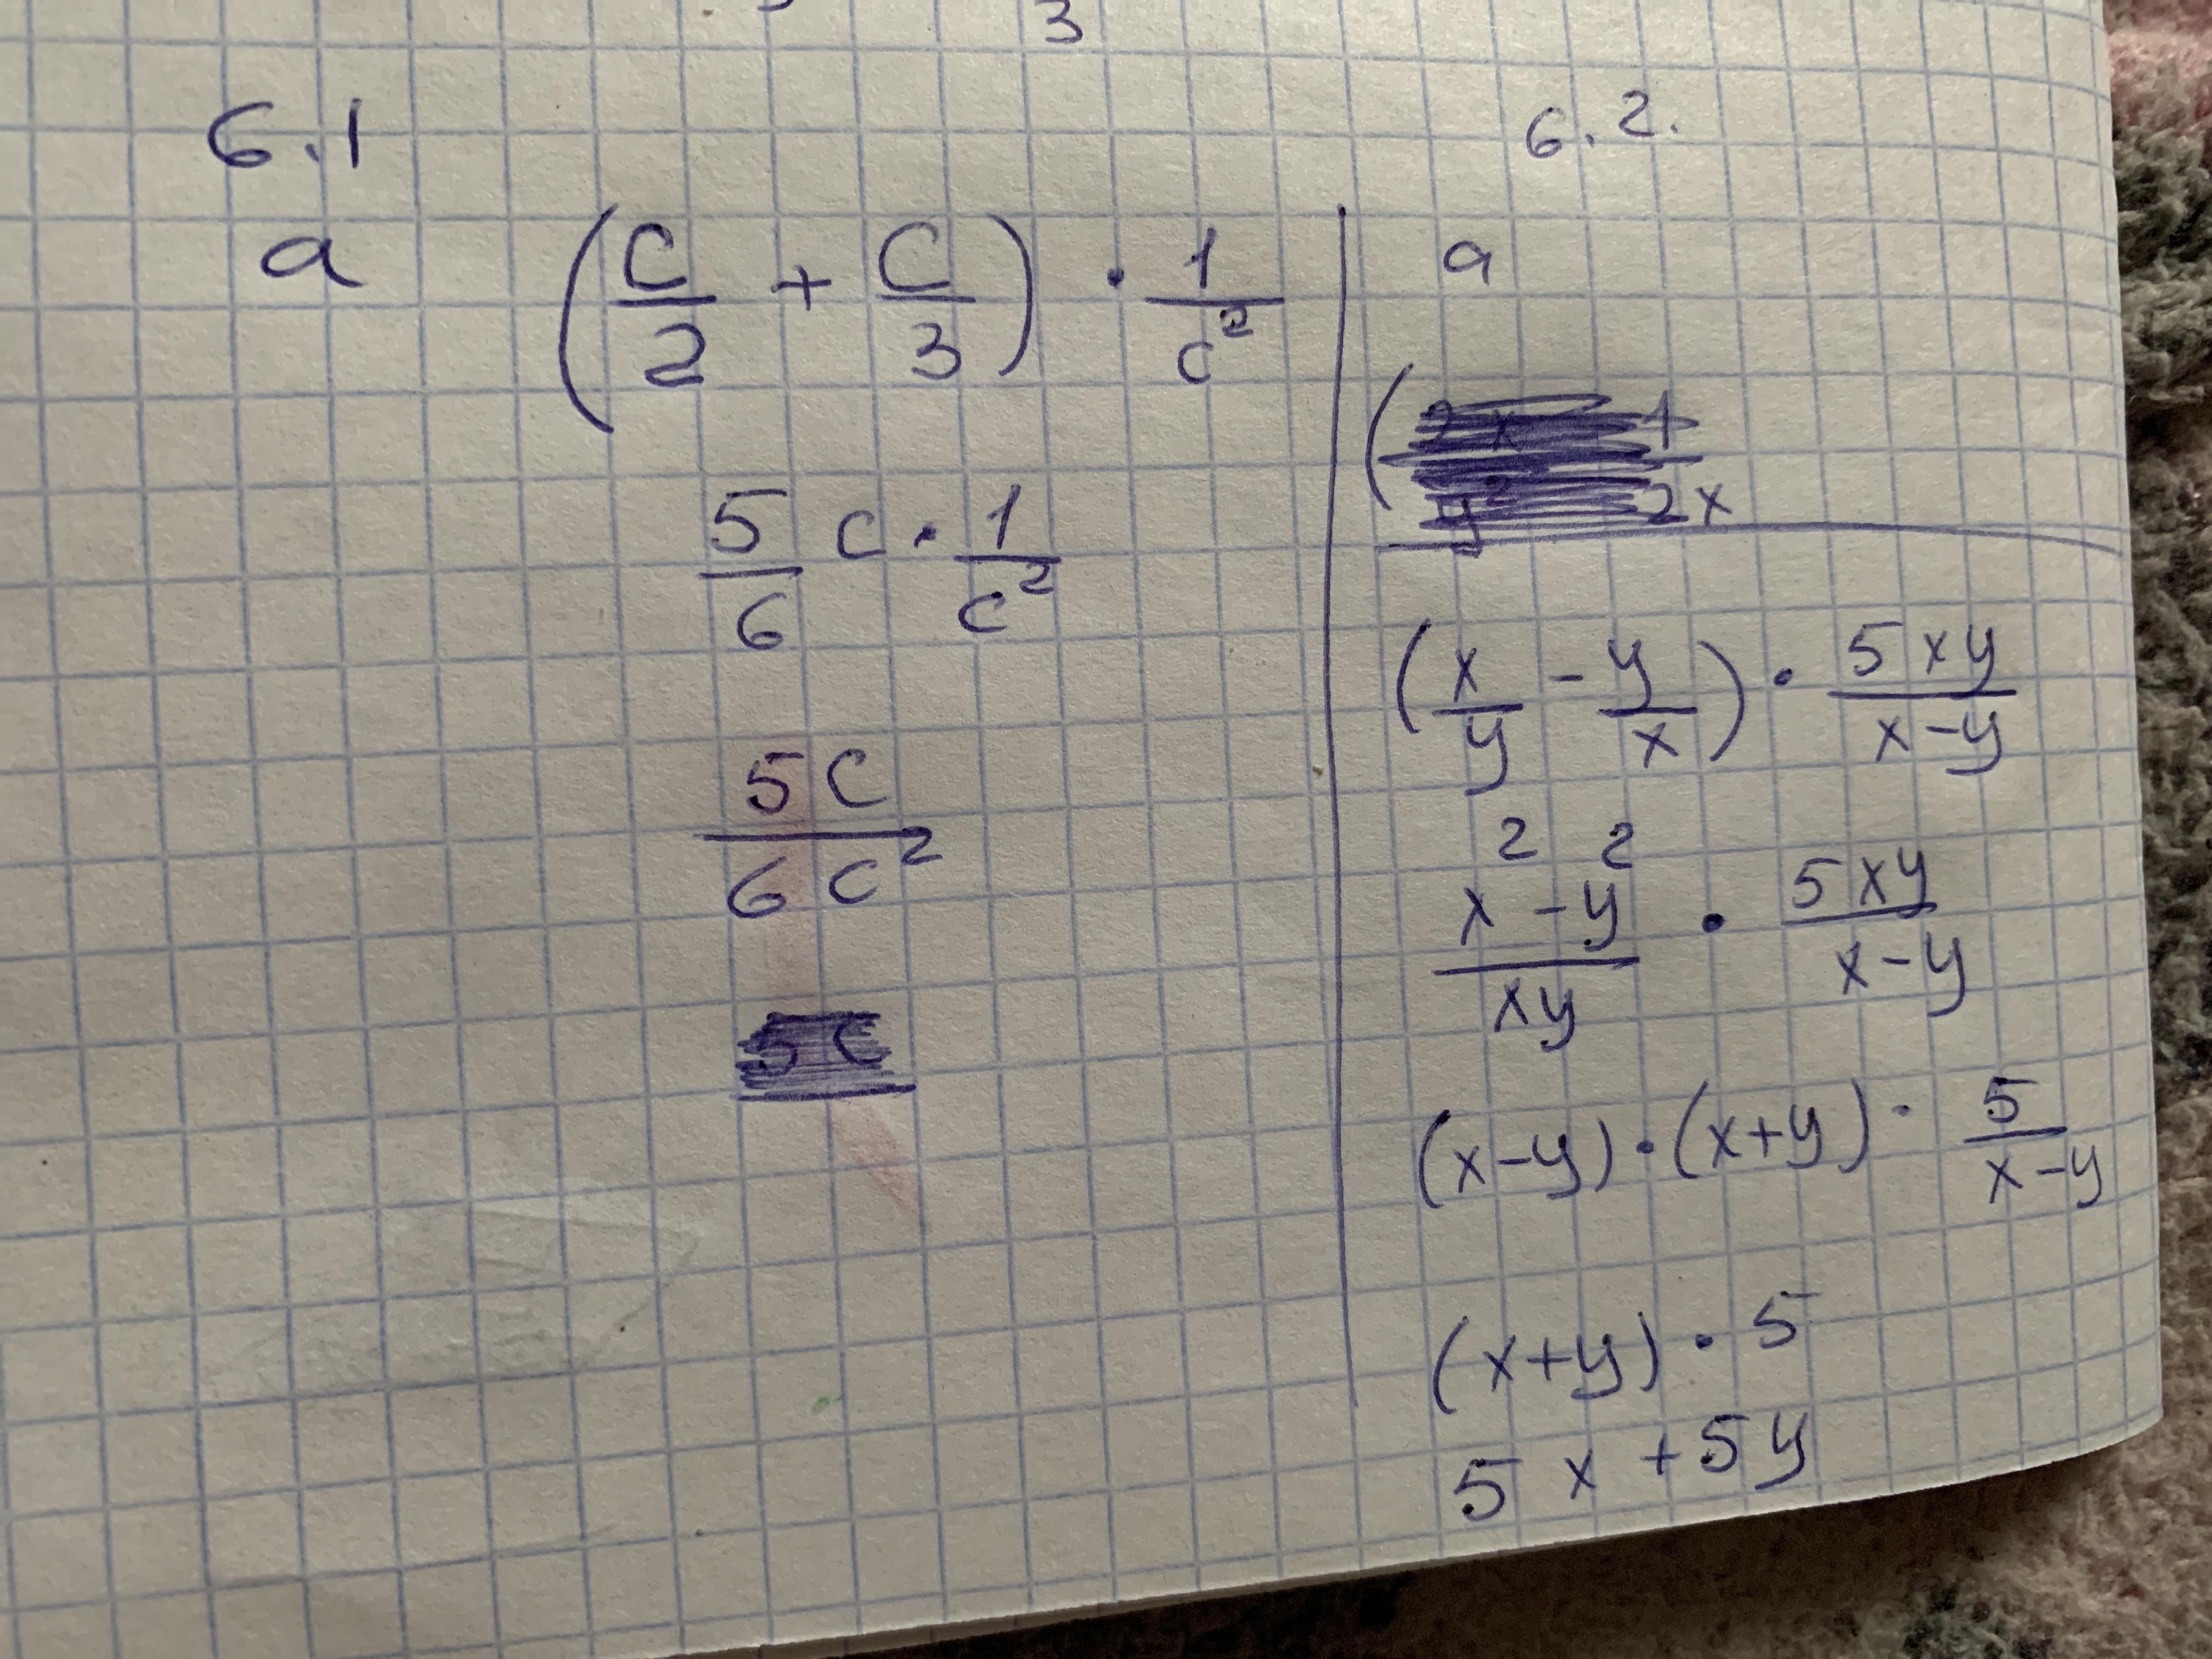 3
6.1
a (c/2 + c/3) · 1/c²
5/6 c · 1/c²
5c/6c²
5c
6.2.
a
(x/y - y/x) · 5xy/x-y
x²-y²/xy · 5xy/x-y
(x-y)·(x+y) · 5/x-y
(x+y) · 5
5x+5y